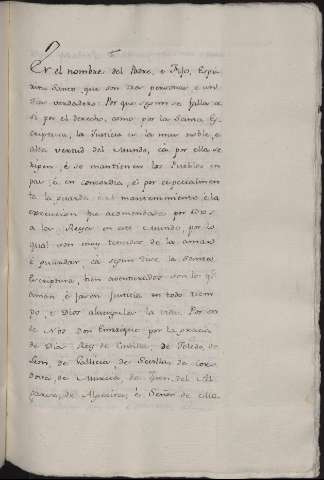 En el nombre del Padre, e Fijo, Espi-
ritu Santo que son tres personas, e un
Dios verdadero: Por que segun se falla a-
si por el derecho, como por la Santa Es-
criptura, la Justicia es la mas noble, e
alta vertud del Mundo, ca por ella se
rigen, é se mantienen los Pueblos en
paz, é en concordia, é por especialmen-
te la guarda mantenimiento é la
execucion fue acomendada por Dios
a los Reyes en este Mundo, por lo
qual son muy tenudos de la amar
é guardar, ca segun dice la Santa
Escriptura, bien aventurados son los qe.
aman, é facen Justicia en todo tiem
po, é Dios alarguelas la vida. Por en
de Nos Don Enrrique por la gracia
de Dios Rey de Castilla, de Toledo, de
Leon, de Gallicia, de Sevilla, de Cor-
dova, de Murcia, de Jaen, del Al-
garve, de Algecira, é Señor de Mo-